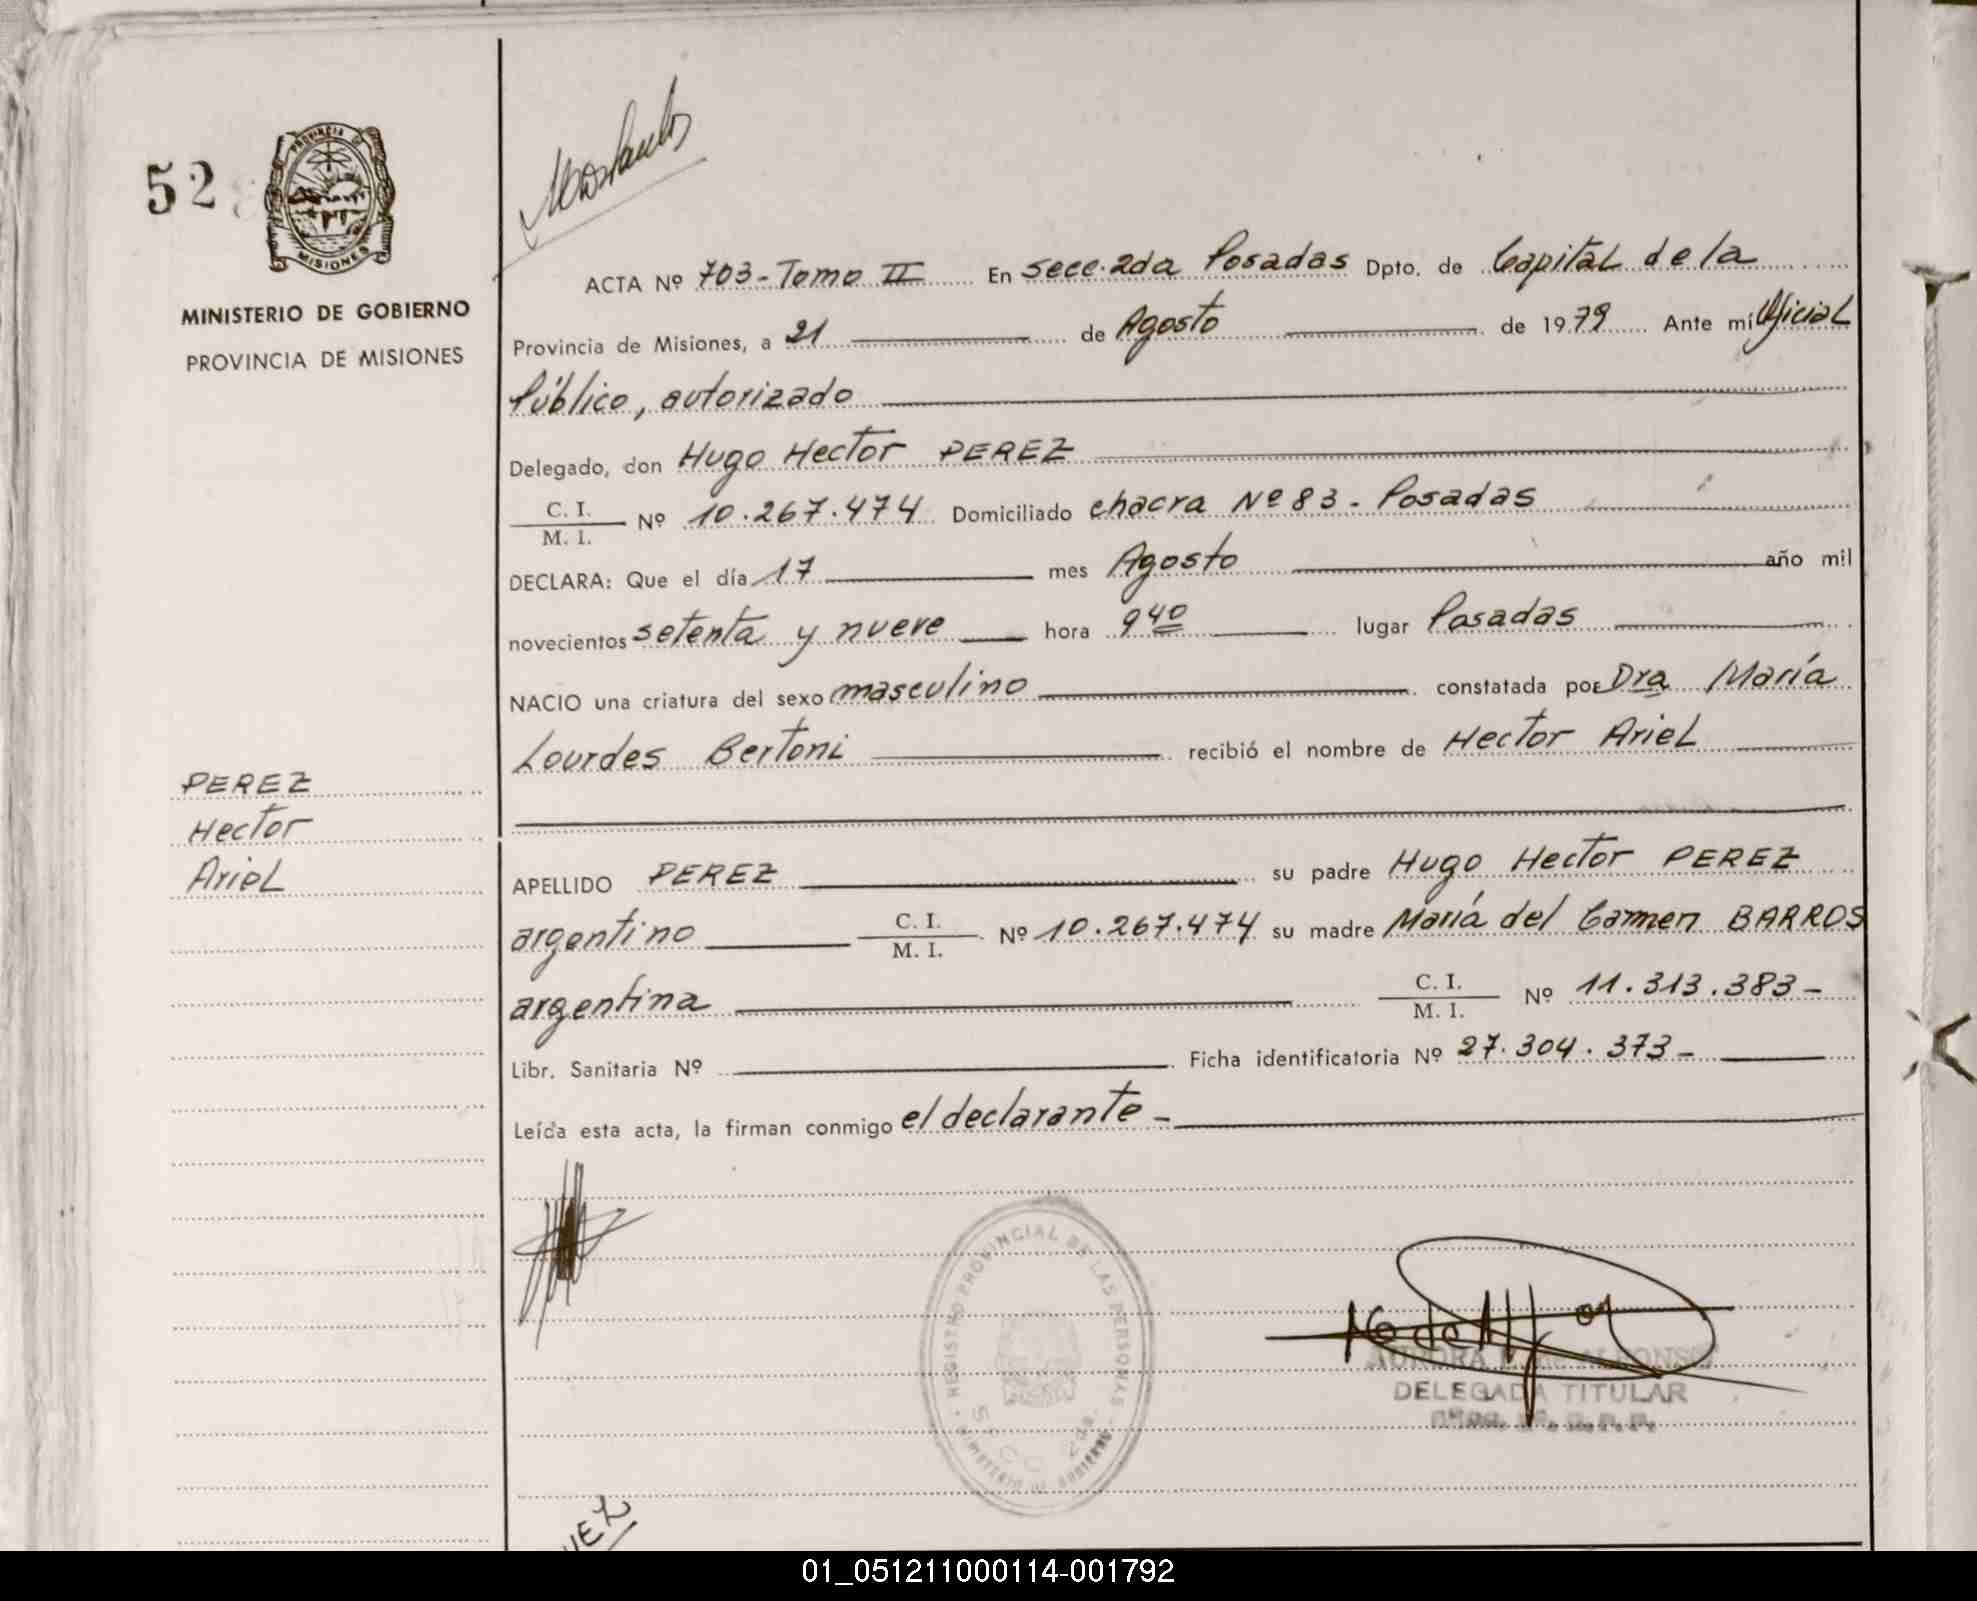 52
PROVINCIA DE
MISIONES
MINISTERIO DE GOBIERNO
PROVINCIA DE MISIONES
ACTA Nº 703-Tomo II En Secc. 2da Posadas Dpto. de Capital de la
Provincia de Misiones, a 21 de Agosto de 1979 Ante mí Oficial
Público, autorizado
Delegado, don Hugo Hector PEREZ
C. I.
M. I. Nº 10.267.474 Domiciliado chacra Nº 83 - Posadas
DECLARA: Que el día 17 mes Agosto año mil
novecientos setenta y nueve hora 9 40 lugar Posadas
NACIO una criatura del sexo masculino constatada por Dra María
Lourdes Bertoni recibió el nombre de Hector Ariel
PEREZ
Hector
Ariel
APELLIDO PEREZ su padre Hugo Hector PEREZ
argentino C. I.
M. I. Nº 10.267.474 su madre María del Carmen BARROS
argentina C. I.
M. I. Nº 11.313.383-
Libr. Sanitaria Nº Ficha identificatoria Nº 27.304.373-
Leída esta acta, la firman conmigo el declarante-
REGISTRO PROVINCIAL DE LAS PERSONAS
AURORA ALFONSO
DELEGADA TITULAR
01_051211000114-001792